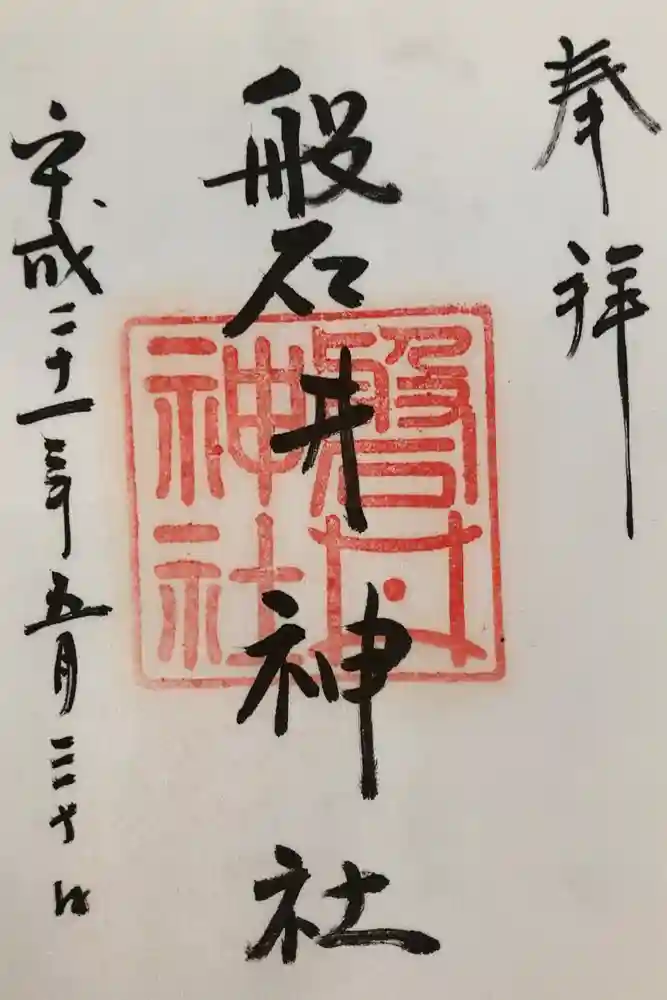 奉拝
磐井神社
平成二十三年五月三十日
磐井
神社